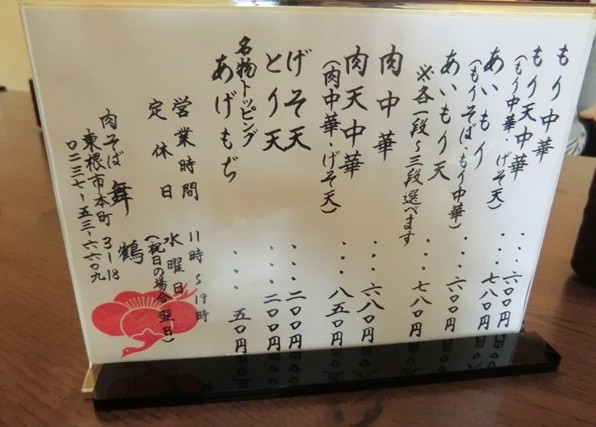 もり中華 ・・・六〇〇円
もり天中華 ・・・七八〇円
(もり中華・げそ天)
あいもり ・・・六〇〇円
(もりそば・もり中華)
あいもり天 ・・・七八〇円
※各一段〜三段選べます
肉中華 ・・・六八〇円
肉天中華 ・・・八五〇円
(肉中華・げそ天)
げそ天 ・・・二〇〇円
とり天 ・・・二〇〇円
名物トッピング
あげもち ・・・五〇円
営業時間 11時〜19時
定休日 水曜日
(祝日の場合翌日)
肉そば 舞鶴
東根市本町3-18
〇二三七-五三-六六〇九